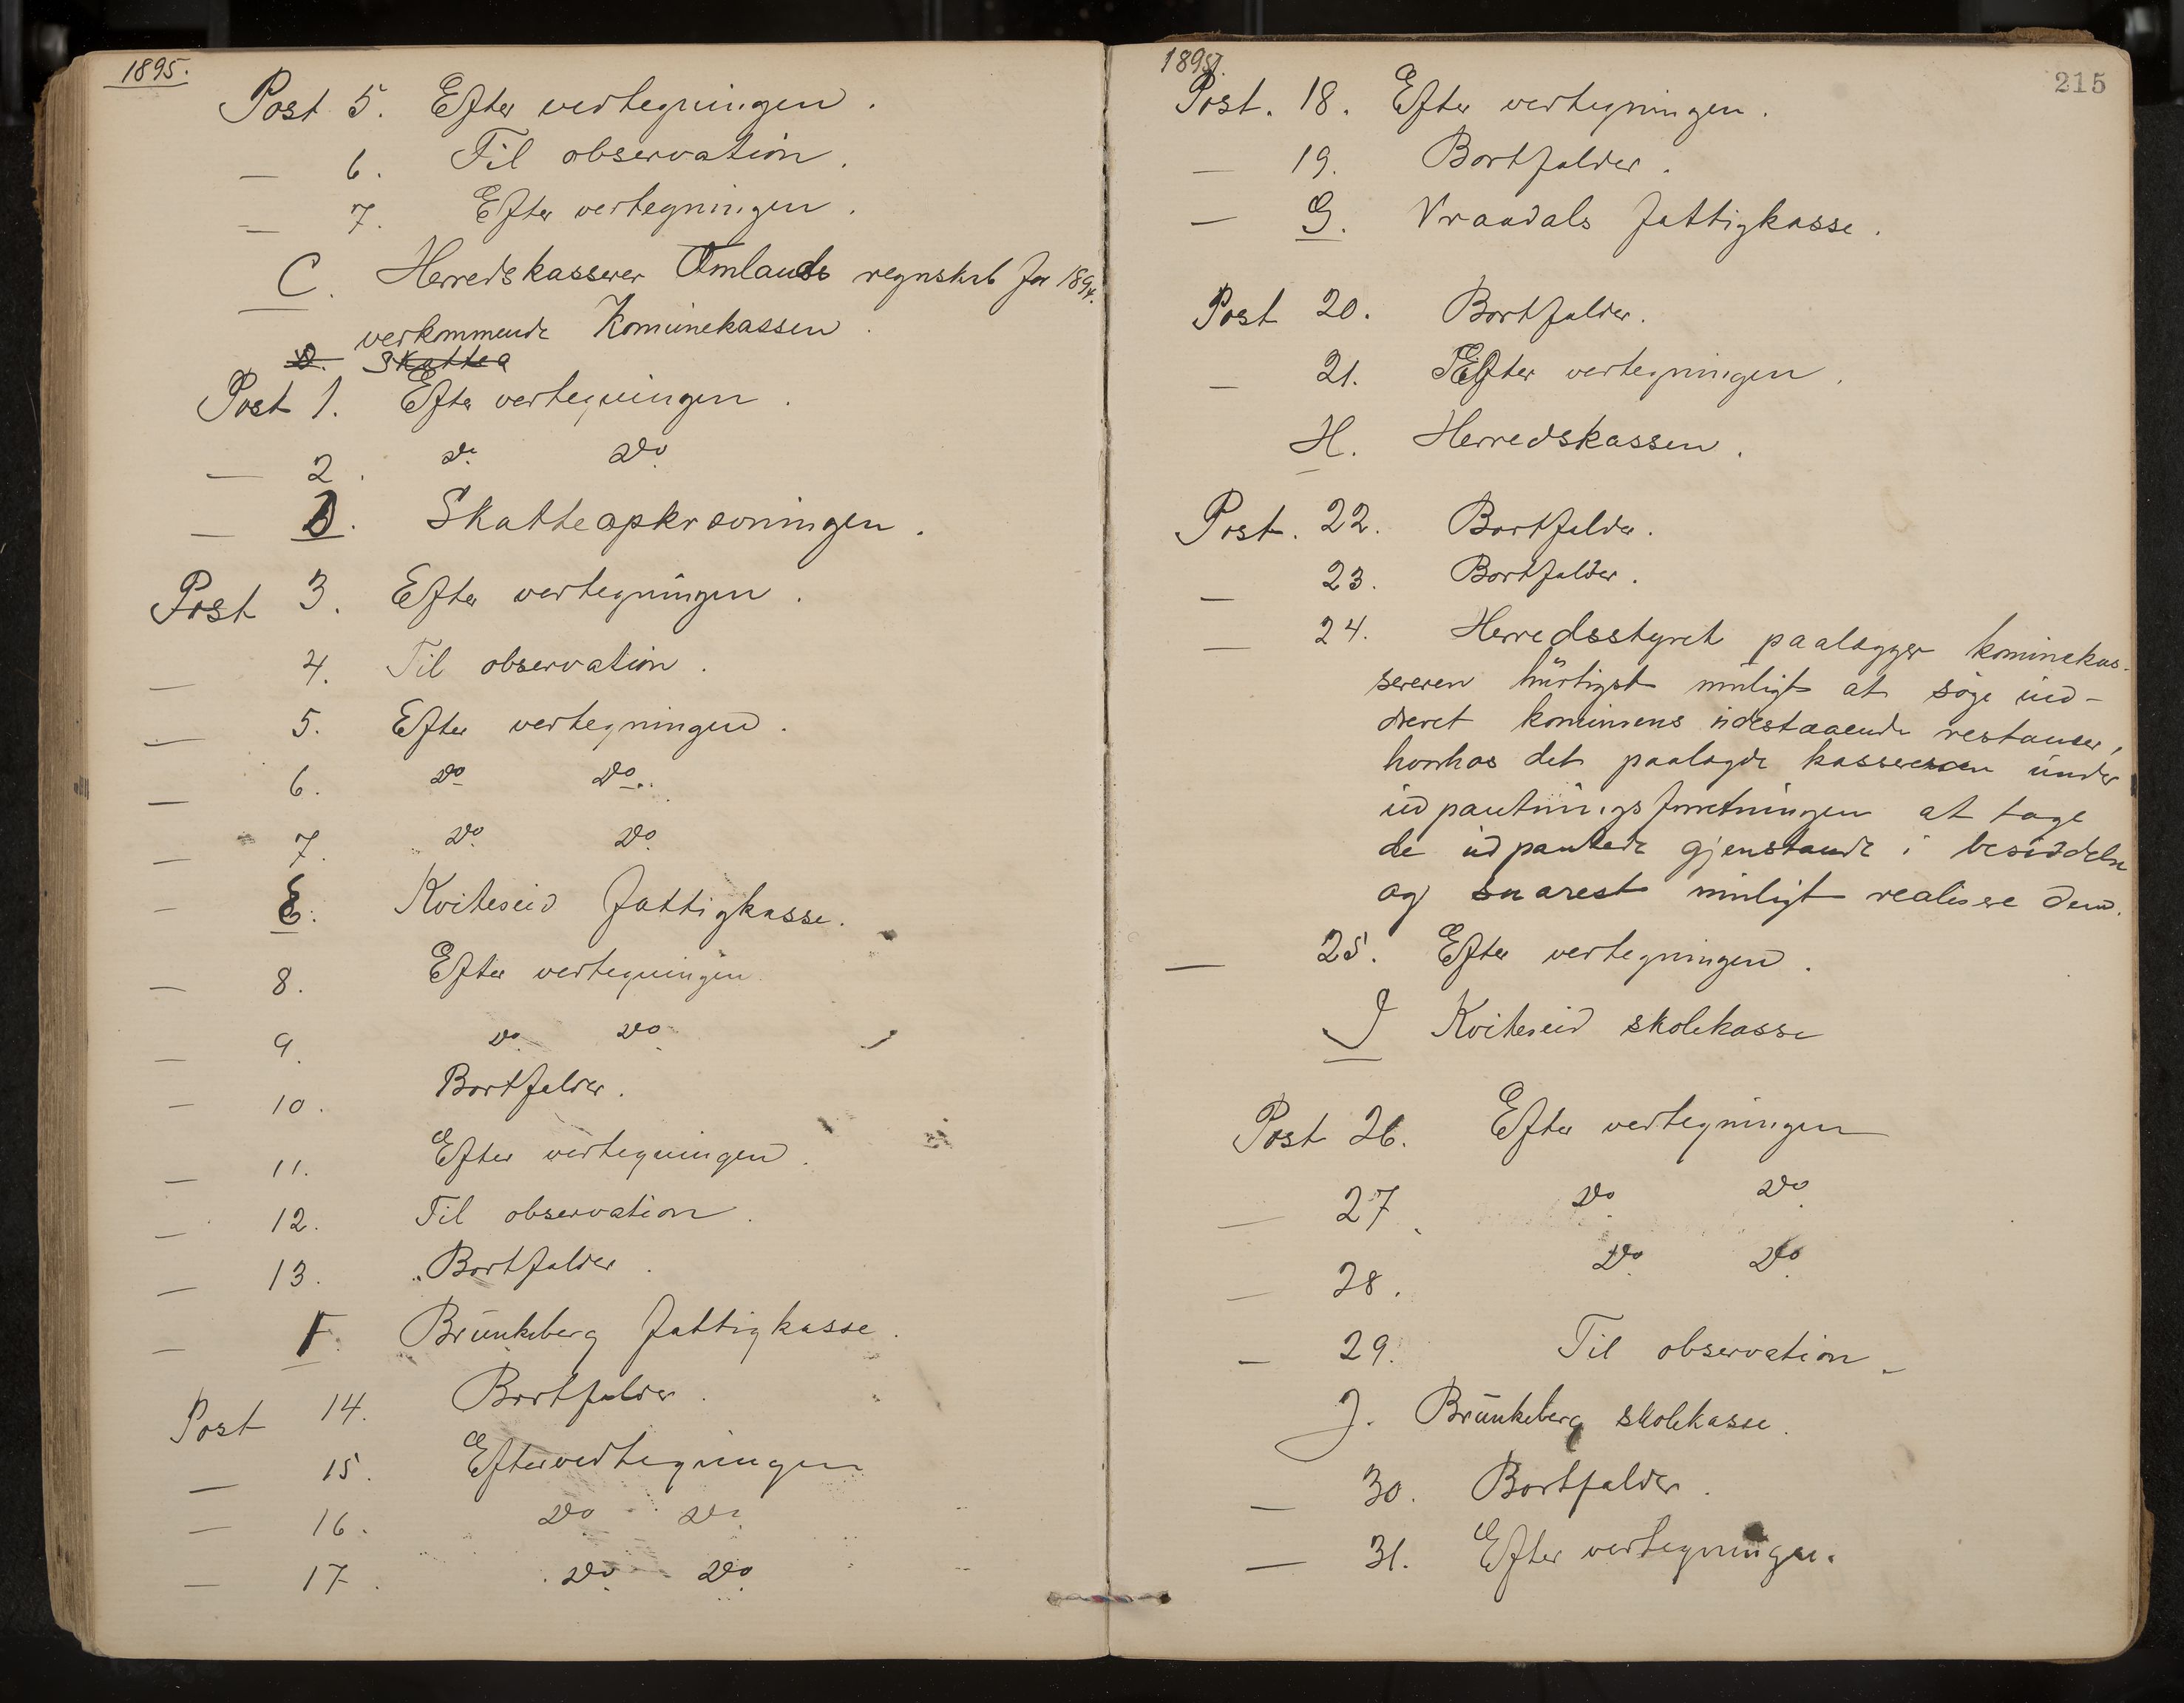 1895.
Post 5. Efter vedtegningen.
— 6. Til observation.
— 7. Efter vedtegningen.
C. Herredskasserer Omlands regnskab for 1894.
vedkommende Komünekassen.
D. Skattea
Post 1. Efter vedtegningen.
— 2. do do
— D. Skatteopkrævningen.
Post 3. Efter vedtegningen.
— 4. Til observation.
— 5. Efter vedtegningen.
— 6. do do.
— 7. do do
— E. Kviteseid fattigkasse.
— 8. Efter vedtegningen
— 9. do do
— 10. Bortfalder.
— 11. Efter vedtegningen.
— 12. Til observation.
— 13. Bortfalder.
— F. Brünkeberg fattigkasse.
Post 14. Bortfalder.
— 15. Efter vedtegningen
— 16. do do
— 17. do do
1895.
215
Post. 18. Efter vedtegningen.
— 19. Bortfalder.
— G. Vraadals fattigkasse.
Post 20. Bortfalder.
— 21. Efter vedtegningen.
H. Herredskassen.
Post. 22. Bortfalder.
— 23. Bortfalder.
— 24. Herredsstyret paalægger komünekas-
sereren hürtigst müligt at søge ind-
drevet komünens üdestaaende restanser,
hvorhos det paalagde kassereren ünder
üdpantningsforretningen at tage
de üdpantede gjenstande i besiddelse
og snarest müligt realisere dem.
— 25. Efter vedtegningen.
I Kviteseid skolekasse
Post 26. Efter vedtegningen
— 27. do do
— 28. do do
— 29. Til observation.
J. Brünkeberg skolekasse.
— 30. Bortfalder.
— 31. Efter vedtegningen.